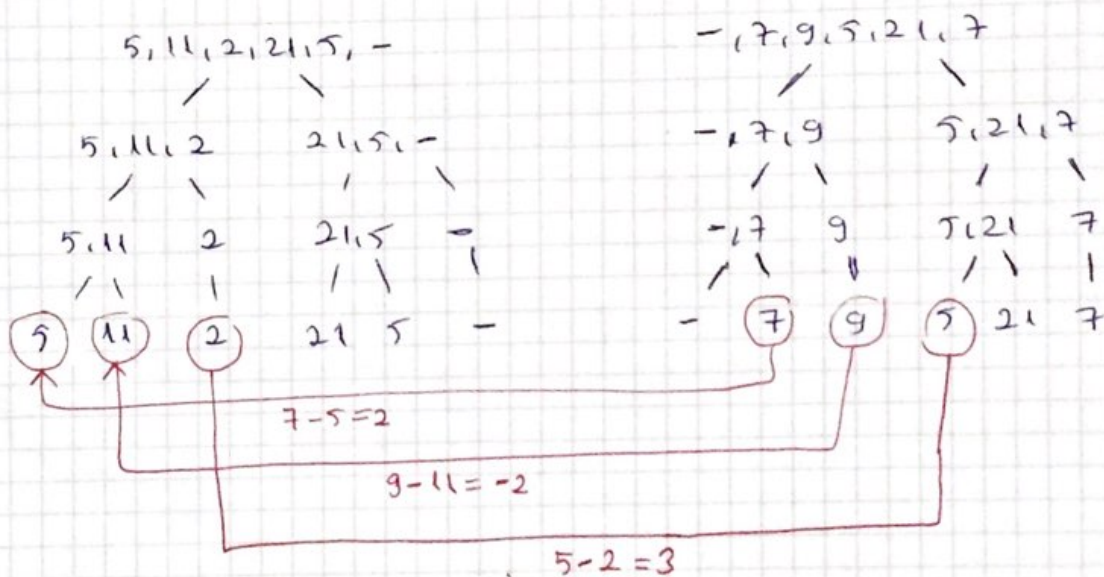 5, 11, 2, 21, 5, - -, 7, 9, 5, 21, 7
5, 11, 2 21, 5, - -, 7, 9 5, 21, 7
5, 11 2 21, 5 - -, 7 9 5, 21 7
5 11 2 21 5 - - 7 9 5 21 7
7-5=2
9-11=-2
5-2=3